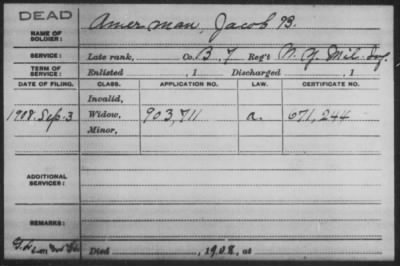 DEAD
NAME OF SOLDIER: Amerman, Jacob B.
SERVICE: Late rank, Co. B. 7 Reg't N. Y. Mil. Inf.
TERM OF SERVICE: Enlisted , 1 Discharged , 1
DATE OF FILING. CLASS. APPLICATION NO. LAW. CERTIFICATE NO.
Invalid,
1908. Sep. 3 Widow, 903,711 a. 671,244
Minor,
ADDITIONAL SERVICES:
REMARKS:
Died , 1908, at